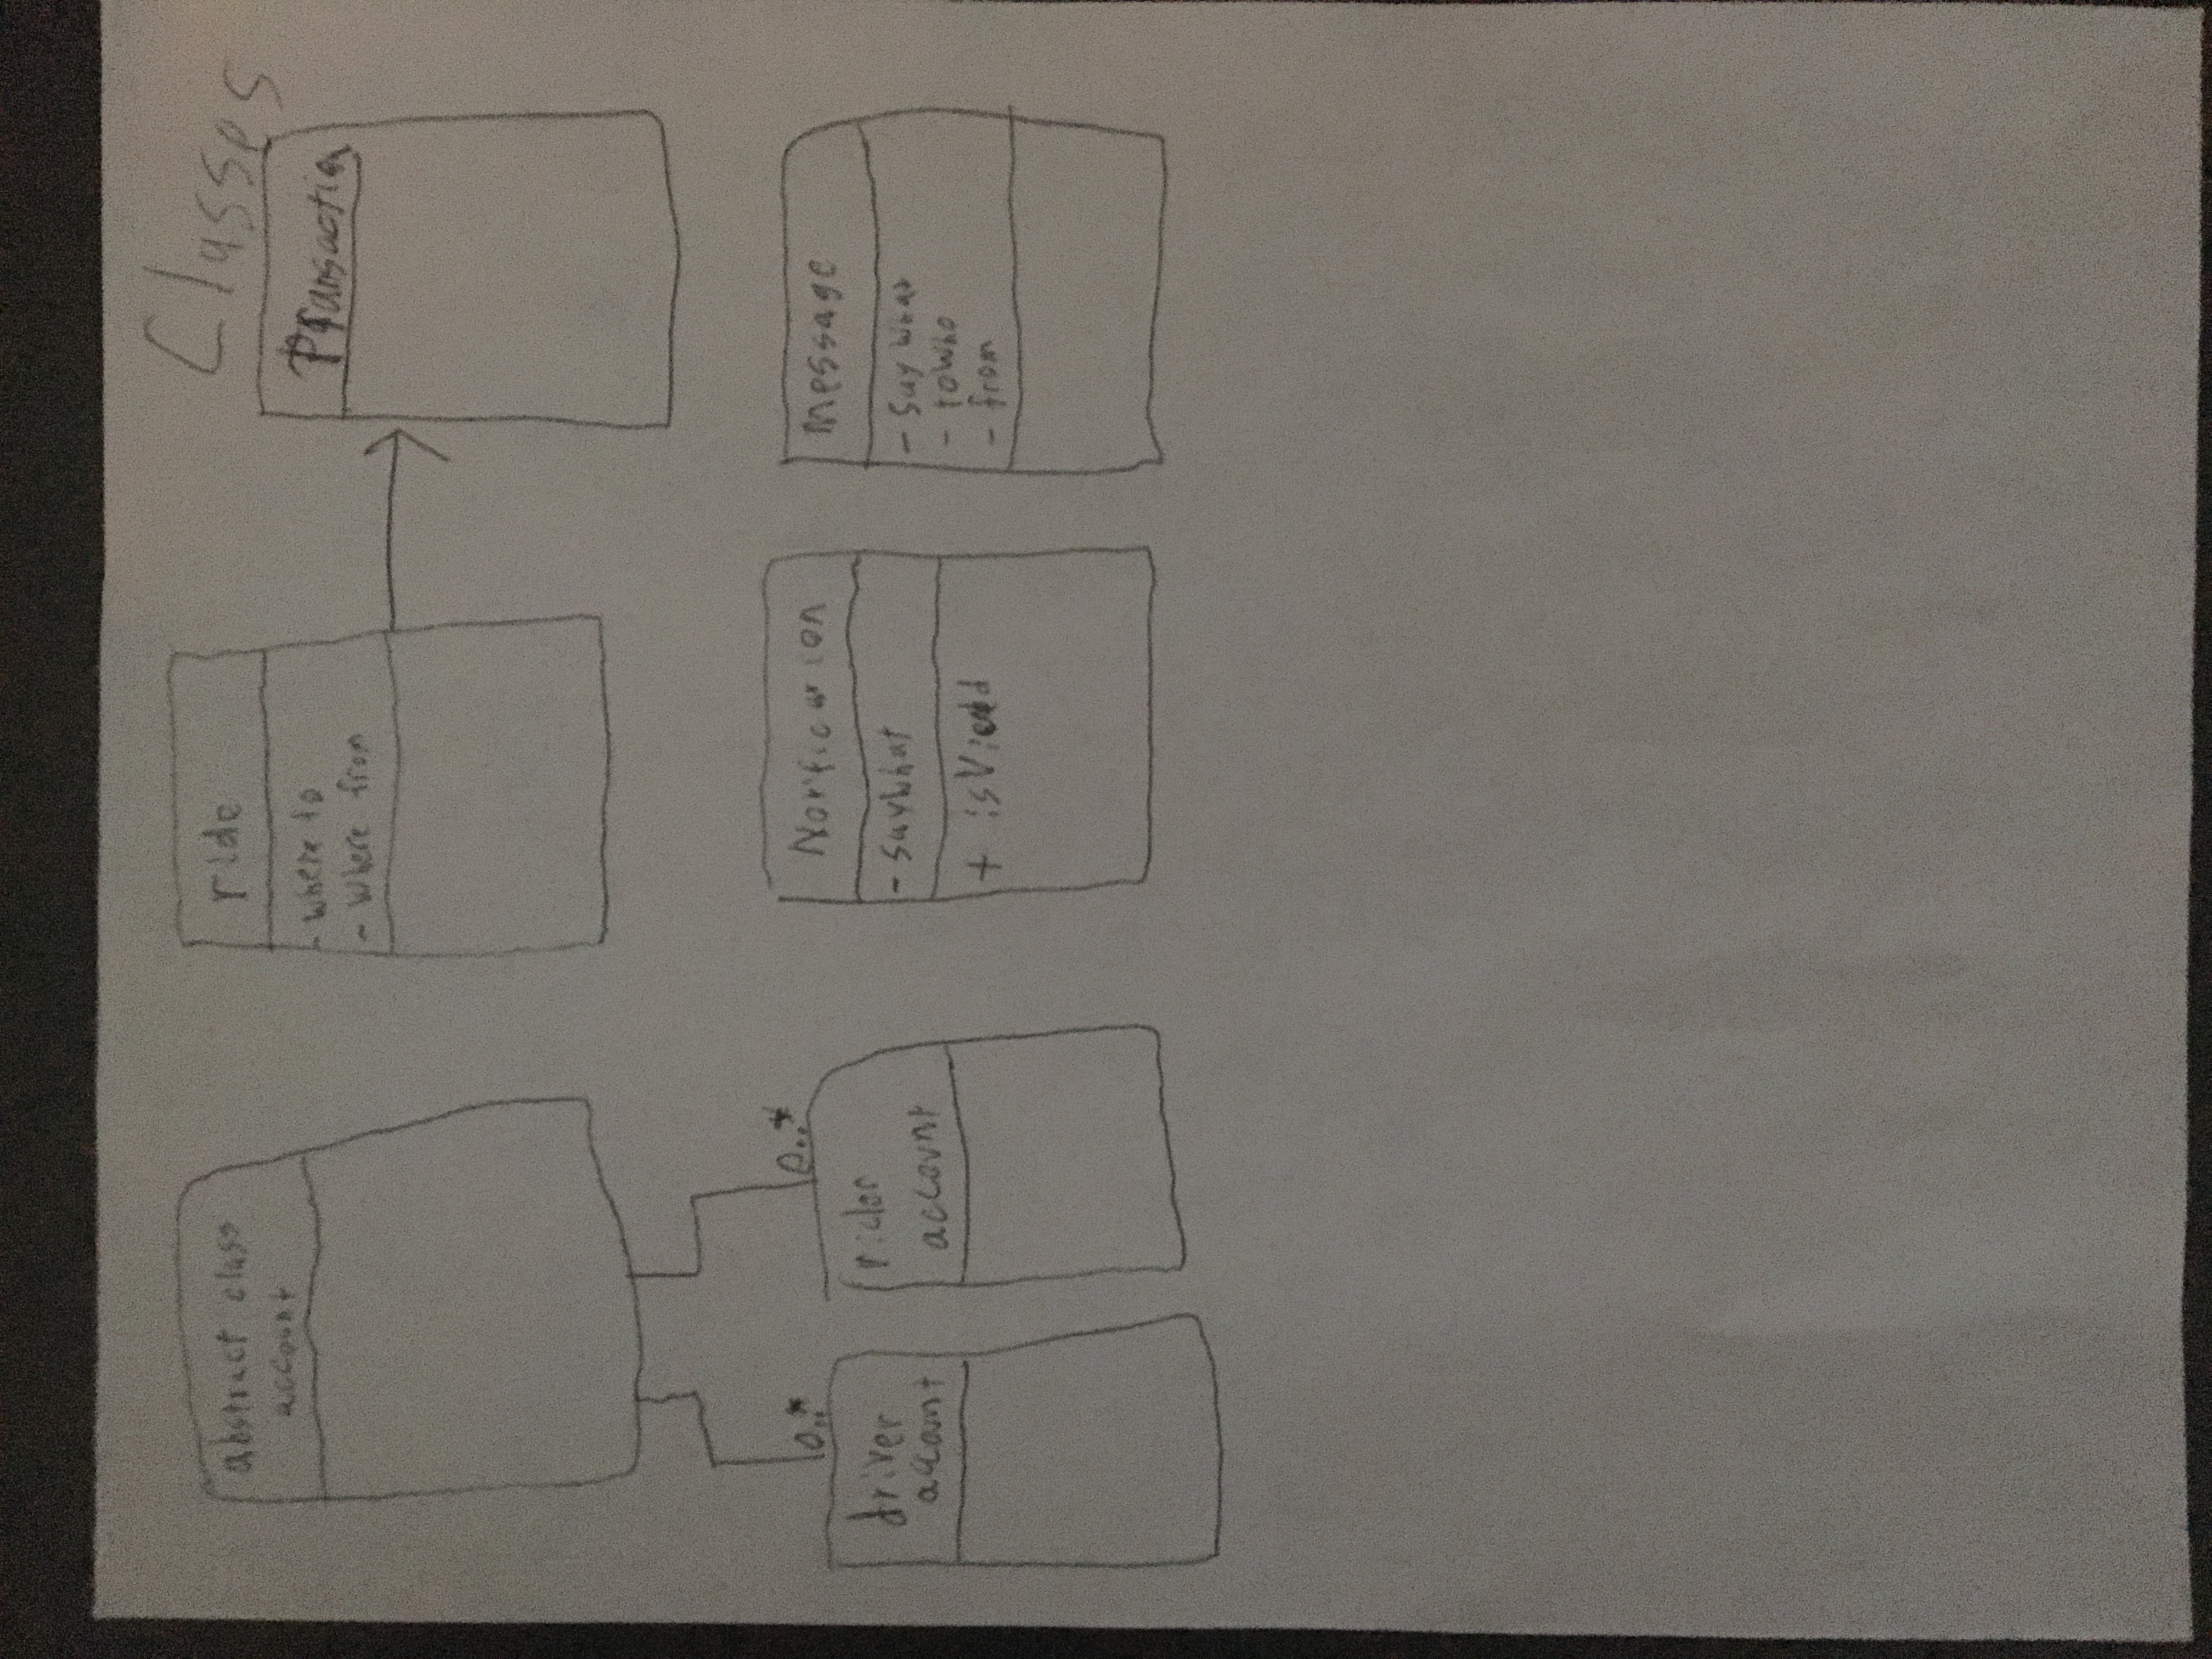 Classes
abstract class
account
ride
- where to
- where from
Transaction
0..*
0..*
driver
account
rider
account
Norficarion
- saywhat
+ isViewd
Message
- Say what
- toWho
- from